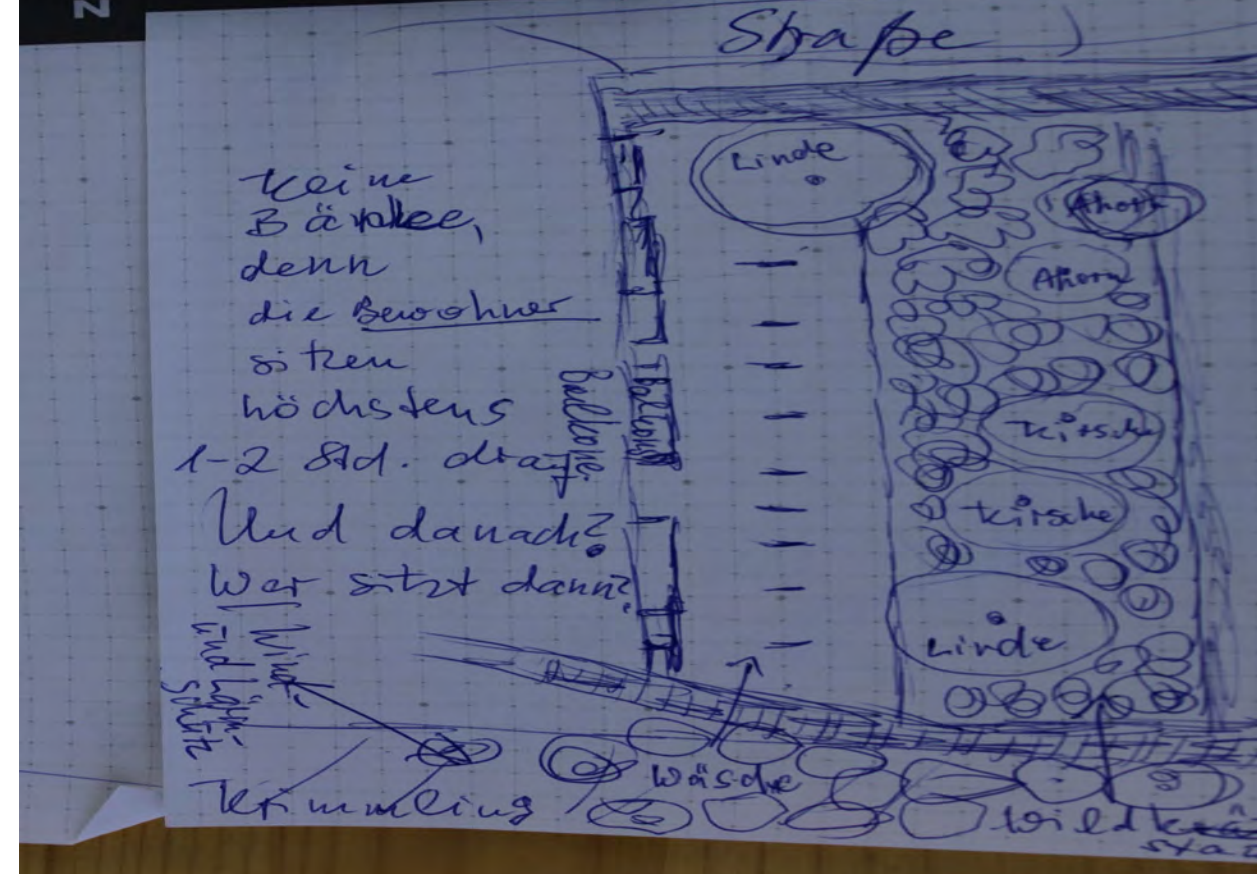 Straße
keine
Bänke,
denn
die Bewohner
sitzen
höchstens
1-2 Std. drauf
Und danach?
Wer sitzt dann?
Wind-
und Lärm-
schutz
Balkone
Balkone
Linde
Ahorn
Ahorn
Kirsche
Kirsche
Linde
Wäsche